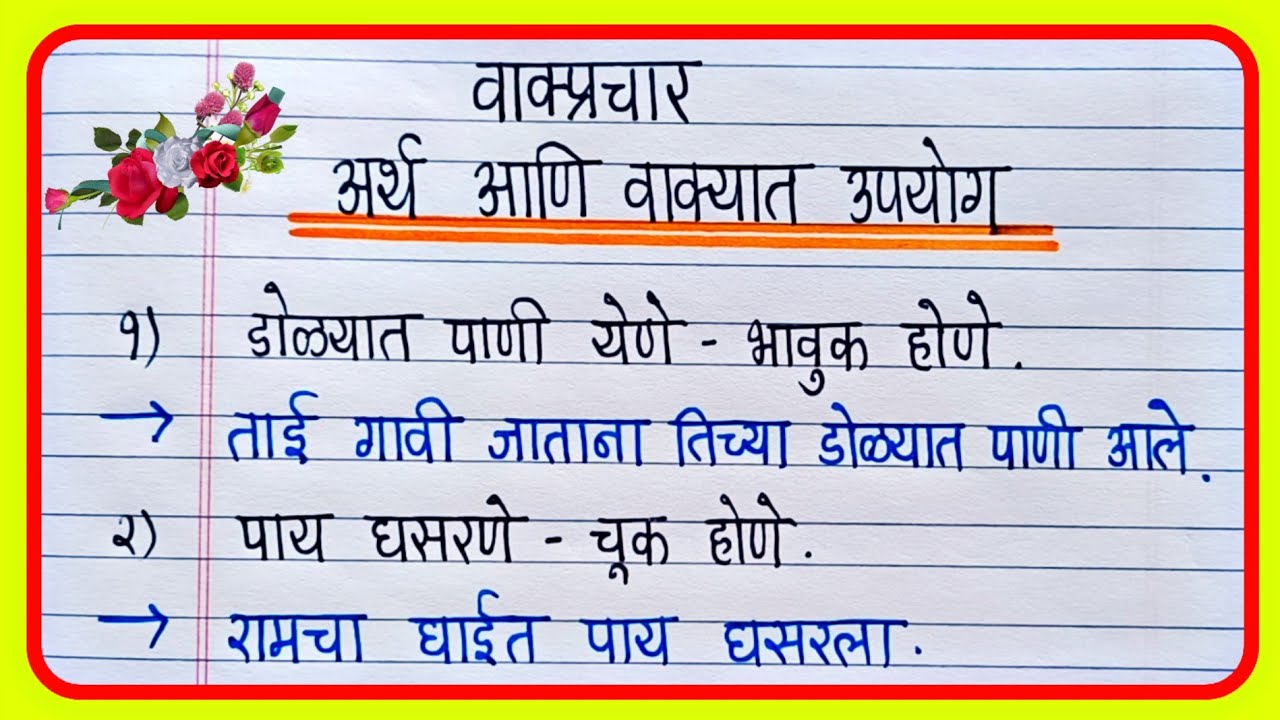 वाक्प्रचार
अर्थ आणि वाक्यात उपयोग
१) डोळ्यात पाणी येणे - भावुक होणे.
→ ताई गावी जाताना तिच्या डोळ्यात पाणी आले.
२) पाय घसरणे - चूक होणे.
→ रामचा घाईत पाय घसरला.